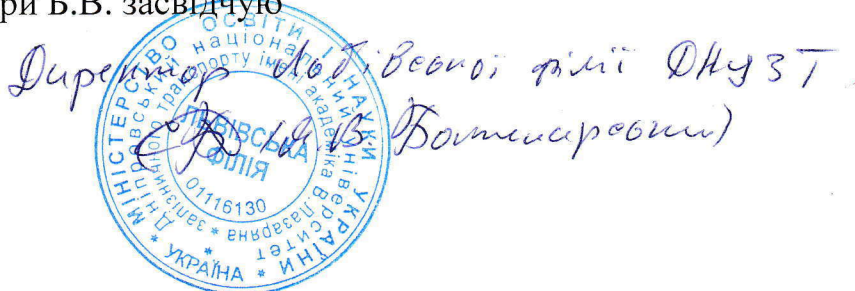 ри Б.В. засвідчую
Директор Львівської філії ДНУЗТ
Я.В Болжеларський)
МІНІСТЕРСТВО ОСВІТИ І НАУКИ УКРАЇНИ
* УКРАЇНА *
Дніпровський національний університет
залізничного транспорту імені академіка В Лазаряна
ЛЬВІВСЬКА
ФІЛІЯ
01116130